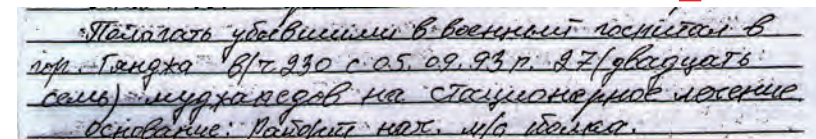 Полагать убывшими в военный госпитал в
гор. Гянджа в/ч 230 с 05.09.93 г. 27 (двадцать
семь) муджахедов на стационарное лечение
основание: Рапорт нач. м/с полка.